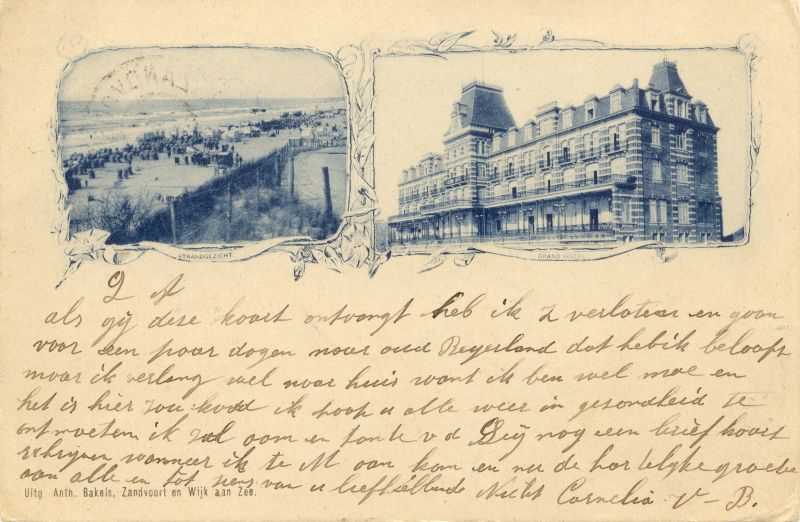 STRANDGEZICHT.
GRAND HOTEL
als gij deze kaart ontvangt heb ik Z verlaten en gaan
voor een paar dagen naar oud Beyerland dat heb ik belooft
maar ik verlang wel naar huis want ik ben wel moe en
het is hier zou koud ik hoop u alle weer in gesondheid te
ontmoeten ik zal oom en tante v d Gij nog een brief kaart
schrijven wanneer ik te M aan kom en nu de hartelijke groete
aan alle en tot siens van u liefhebbende Nicht Cornelia V-B.
Uitg Anth. Bakels, Zandvoort en Wijk aan Zee.